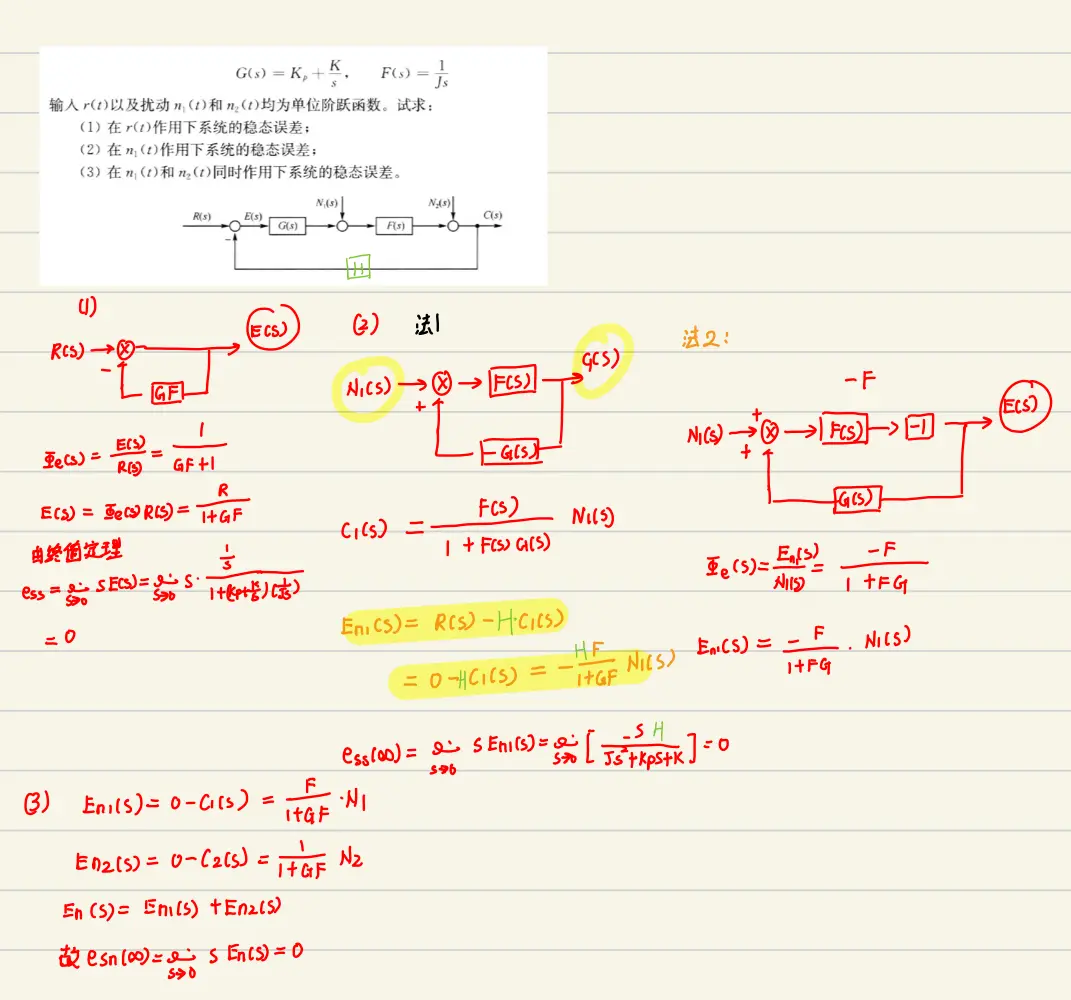 G(s) = K_p + K/s, F(s) = 1/Js
输入 r(t)以及扰动 n₁(t)和 n₂(t)均为单位阶跃函数。试求：
(1) 在 r(t)作用下系统的稳态误差；
(2) 在 n₁(t)作用下系统的稳态误差；
(3) 在 n₁(t)和 n₂(t)同时作用下系统的稳态误差。
N₁(s) N₂(s)
R(s) E(s) G(s) F(s) C(s)
−
H
(1)
R(s) E(s)
−
GF
Φe(s) = E(s)/R(s) = 1/(GF+1)
E(s) = Φe(s) R(s) = R/(1+GF)
由终值定理
ess = lim s→0 S E(s) = lim s→0 S · (1/s)/(1+(Kp+K/s)(1/Js))
= 0
(2) 法1
N₁(s) F(s) C(s)
+
−G(s)
C₁(s) = F(s)/(1+F(s)G(s)) N₁(s)
En₁(s) = R(s) − H·C₁(s)
= 0 − HC₁(s) = − HF/(1+GF) N₁(s)
ess(∞) = lim s→0 S En₁(s) = lim s→0 [ −S H/(Js²+KpS+K) ] = 0
法2：
−F
+
N₁(s) F(s) −1 E(s)
+
G(s)
Φe(s) = En₁(s)/N₁(s) = −F/(1+FG)
En₁(s) = −F/(1+FG) · N₁(s)
(3) En₁(s) = 0 − C₁(s) = F/(1+GF) · N₁
En₂(s) = 0 − C₂(s) = 1/(1+GF) N₂
En(s) = En₁(s) + En₂(s)
故 esn(∞) = lim s→0 S En(s) = 0